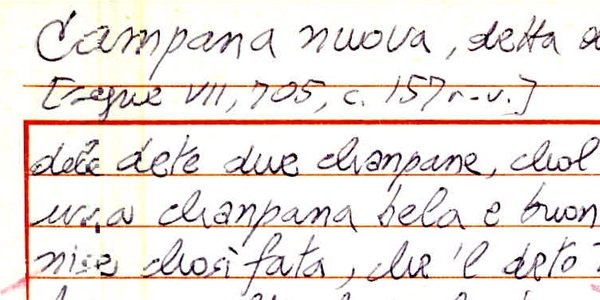 Campana nuova, detta
[segue VII, 705, c. 157 r-v.]
dete due chanpane, chol
una chanpana bela e buon
nise chosì fata, che 'l deto